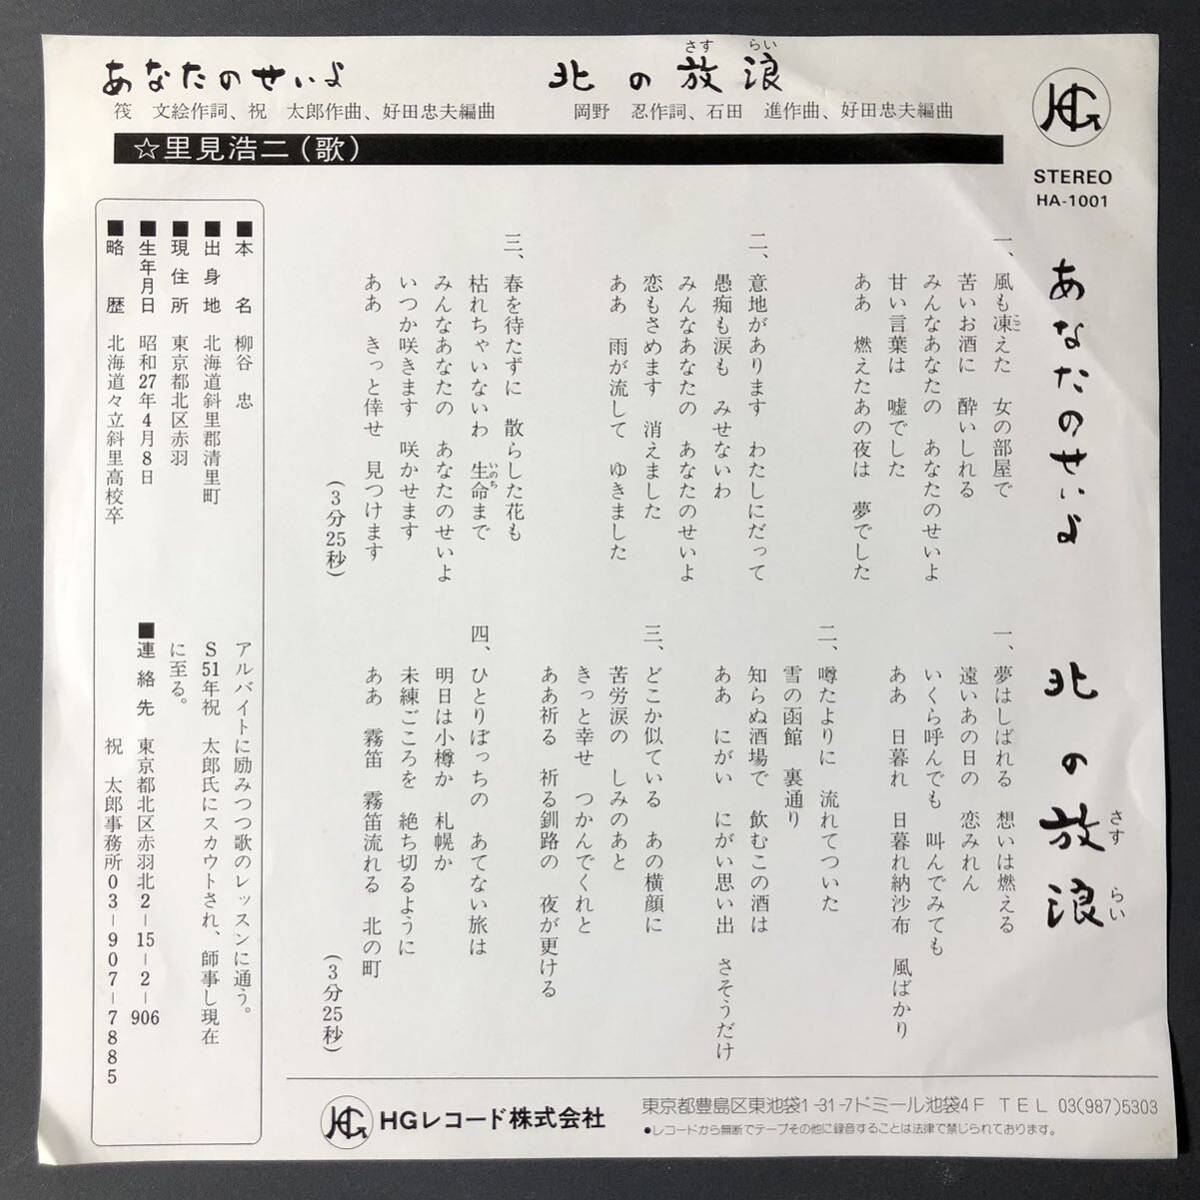 あなたのせいよ
筏 文絵作詞、祝 太郎作曲、好田忠夫編曲
さす らい
北の放浪
岡野 忍作詞、石田 進作曲、好田忠夫編曲
☆里見浩二(歌)
HG
STEREO
HA-1001
あなたのせいよ
一、風も凍えた 女の部屋で
こご
苦いお酒に 酔いしれる
みんなあなたの あなたのせいよ
甘い言葉は 嘘でした
ああ 燃えたあの夜は 夢でした
二、意地があります わたしにだって
愚痴も涙も みせないわ
みんなあなたの あなたのせいよ
恋もさめます 消えました
ああ 雨が流して ゆきました
三、春を待たずに 散らした花も
枯れちゃいないわ 生命まで
いのち
みんなあなたの あなたのせいよ
いつか咲きます 咲かせます
ああ きっと倖せ 見つけます
(3分25秒)
北の放浪
さす らい
一、夢はしばれる 想いは燃える
遠いあの日の 恋みれん
いくら呼んでも 叫んでみても
ああ 日暮れ 日暮れ納沙布 風ばかり
二、噂たよりに 流れてついた
雪の函館 裏通り
知らぬ酒場で 飲むこの酒は
ああ にがい にがい思い出 さそうだけ
三、どこか似ている あの横顔に
苦労涙の しみのあと
きっと幸せ つかんでくれと
ああ祈る 祈る釧路の 夜が更ける
四、ひとりぼっちの あてない旅は
明日は小樽か 札幌か
未練ごころを 絶ち切るように
ああ 霧笛 霧笛流れる 北の町
(3分25秒)
■本名 柳谷 忠
■出身地 北海道斜里郡清里町
■現住所 東京都北区赤羽
■生年月日 昭和27年4月8日
■略歴 北海道々立斜里高校卒
アルバイトに励みつつ歌のレッスンに通う。
S51年祝 太郎氏にスカウトされ、師事し現在
に至る。
■連絡先 東京都北区赤羽北2-15-2-906
祝 太郎事務所03-907-7885
HG
HGレコード株式会社
東京都豊島区東池袋1-31-7ドミール池袋4F TEL 03(987)5303
●レコードから無断でテープその他に録音することは法律で禁じられております。